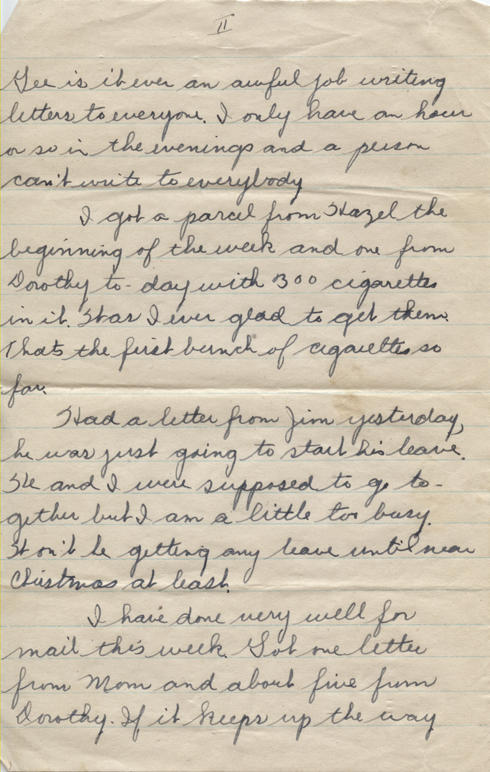 II
Gee is it ever an awful job writing
letters to everyone. I only have an hour
or so in the evenings and a person
can't write to everybody
I got a parcel from Hazel the
beginning of the week and one from
Dorothy to-day with 300 cigarettes
in it. Was I ever glad to get them.
That's the first bunch of cigarettes so
far.
Had a letter from Jim yesterday,
he was just going to start his leave.
He and I were supposed to go to-
gether but I am a little too busy.
Won't be getting any leave until near
Christmas at least.
I have done very well for
mail this week. Got one letter
from Mom and about five from
Dorothy. If it keeps up the way